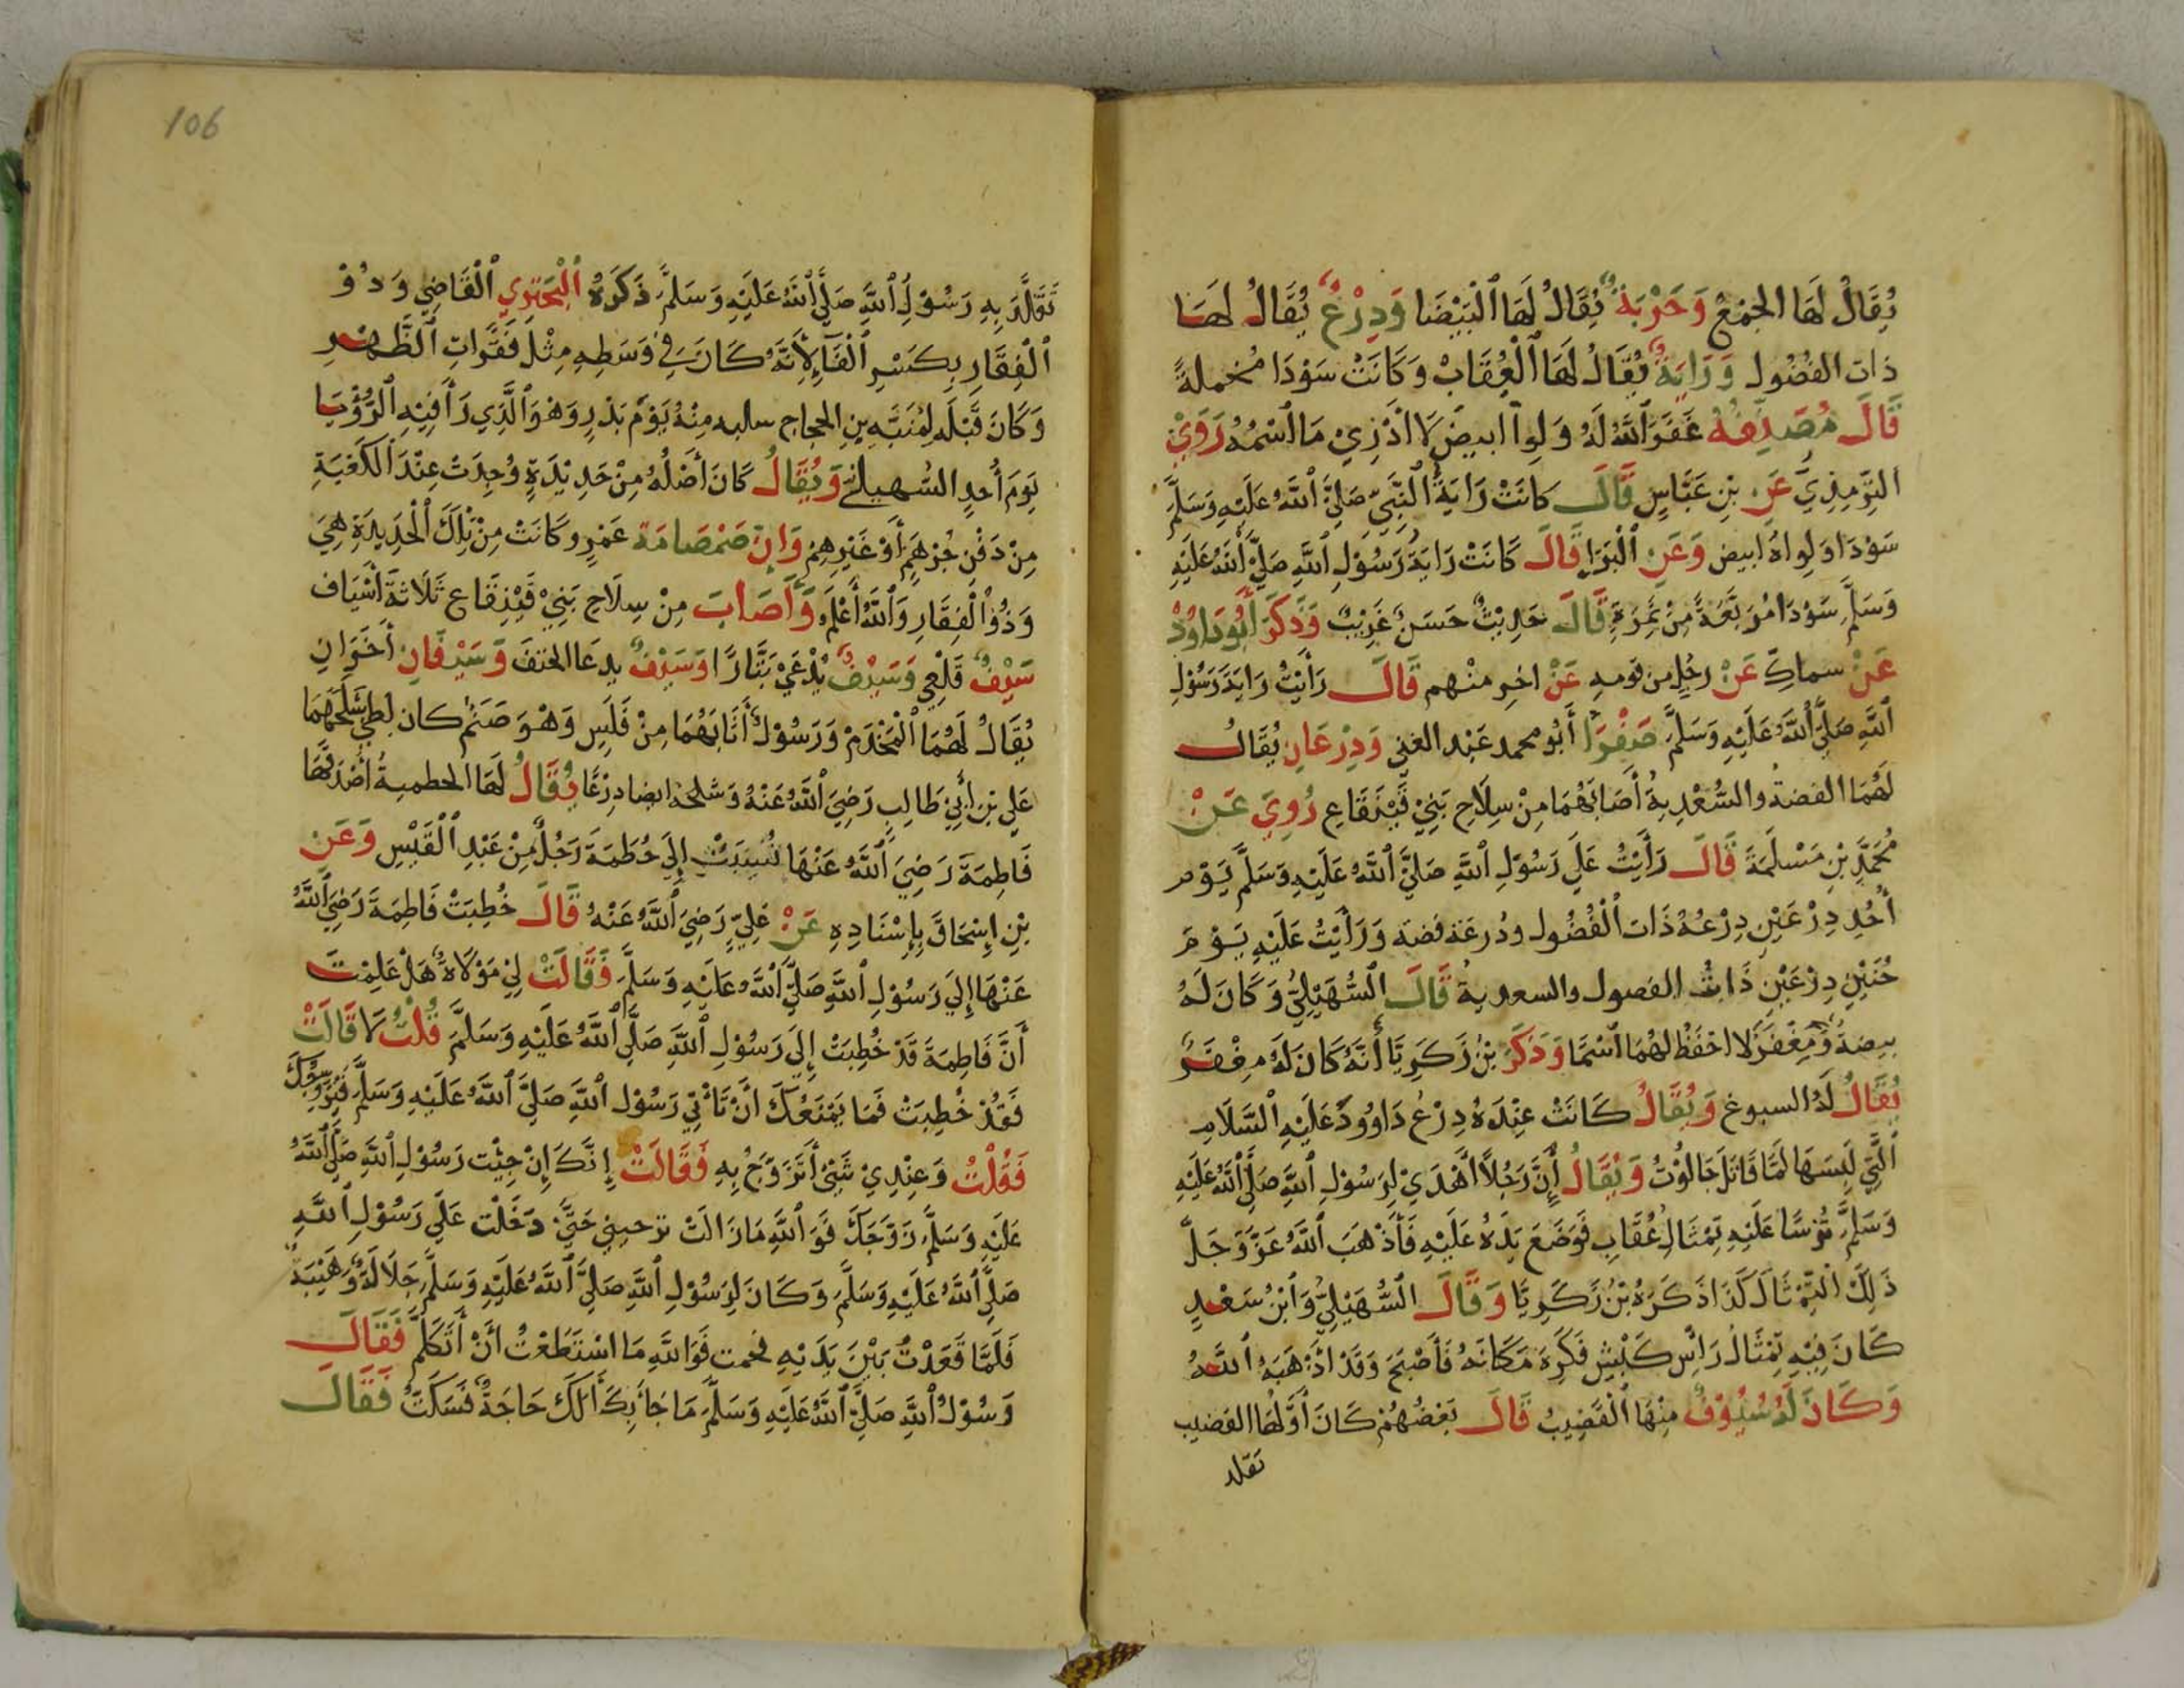 يُقَالُ لَهَا الجُمْعُ وَحَرْبَةٌ يُقَالُ لَهَا الْبَيْضَا وَدِرْعٌ يُقَالُ لَهَا
ذات الفضُول وَرَايَةٌ يُقَالُ لَهَا الْعُقَابْ وَكَانَتْ سَوْدَا مُخملةً
قَالَ مُصَنِّفُهُ غَفَرَ اللَّهُ لَهُ وَلِوا ابيضَ لَا ادْرِيْ مَا اسْمُهُ رَوَيْ
التِّرْمِذِيّ عَنِ بْنِ عَبَّاسٍ قَالَ كانَتْ رَايَةُ النَّبِيِّ صَلَّيَ اللَّهُ عَلَيْهِ وَسَلَّمَ
سَوْدَا وَلِواهُ ابيض وَعَنِ الْبَرَا قَالَ كَانَتْ رَايَةُ رَسُوْلِ اللَّهِ صَلَّيَ اللَّهُ عَلَيْهِ
وَسَلَّمَ سَوْدَا مُرَبَّعَةً مِنْ نَمِرَةٍ قَالَ حَدِيْثٌ حَسَنٌ غَرِيْبٌ وَذَكَرَ أَبُوْدَاوُدْ
عَنْ سماكٍ عَنْ رجُلٍ من قومه عَنْ اخر منهم قَالَ رَأَيْتُ رَايَةَ رَسُوْلِ
اللَّهِ صَلَّيَ اللَّهُ عَلَيْهِ وَسَلَّمَ صَفْرَا أَبُو محمد عَبْد الغني وَدِرْعَانِ يُقَالُ
لَهُمَا الفضة والسُّعْدِيةُ أَصَابَهُمَا مِنْ سِلَاحِ بَنِيْ قَيْنَقَاعِ رُوِيَ عَنْ
مُحَمَّدِ بْنِ مَسْلَمَةَ قَالَ رَأَيْتُ عَلَي رَسُوْلِ اللَّهِ صَلَّيَ اللَّهُ عَلَيْهِ وَسَلَّمَ يَوْمَ
أُحُدٍ دِرْعَيْنِ دِرْعُهُ ذَات الْفُضُول ودُرعَه فضة وَرَأَيْتُ عَلَيْهِ يَوْمَ
حُنَيْنٍ دِرْعَيْنِ ذَاتُ الفصول والسعدية قَالَ السُّهَيْلِيُّ وَكَانَ لَهُ
بيضةٌ وَمِغْفَرٌ لا احْفَظُ لهُمَا اسْمًا وَذَكَرَ بْنُ زَكَرِيَّا أَنَّهُ كَانَ لَهُ مِغْفَرٌ
يُقَالُ لَهُ السبوغ وَيُقَالُ كَانَتْ عِنْدَهُ دِرْعُ دَاوُودَ عَلَيْهِ السَّلَامِ
الَّتِي لَبِسَهَا لَمَّا قَاتَلَ جَالُوْتُ وَيُقَالُ إِنَّ رَجُلًا أَهْدَيْ لِرَسُوْلِ اللَّهِ صَلَّي اللَّهُ عَلَيْهِ
وَسَلَّمَ تُرْسًا عَلَيْهِ تِمْثَالُ عُقَابٍ فَوَضَعَ يَدَهُ عَلَيْهِ فَأَذْهَبَ اللَّهُ عَزَّ وَجَلَّ
ذَلِكَ التِّمْثَالَ كَذَا ذَكَرَهُ بْنُ زَكَرِيَّا وَقَالَ السُّهَيْلِيُّ وَابْنُ سَعْدٍ
كَانَ فِيْهِ تِمْثَالُ رَاسِ كَبْشٍ فَكَرِهَ مَكَانَهُ فَأَصْبَحَ وَقَدْ اذْهَبَهُ اللَّهُ
وَكَانَ لَهُ سُيُوْفٌ مِنْهَا الْقَضِيبُ قَالَ بَعْضُهُمْ كَانَ أَوَّلهَا القضيب
تقلد
106
تَقَلَّدَ بِهِ رَسُوْلُ اللَّهِ صَلَّيَ اللَّهُ عَلَيْهِ وَسَلَّمَ ذَكَرَهُ الْبحتوي الْقَاضِي وَذُوْ
الْفِقَارِ بِكَسْرِ الْفَا لِأَنَّهُ كَانَ فِي وَسَطِهِ مِثْلَ فَقَّرَاتِ الظَّهْرِ
وَكَانَ قَبْلَهُ لِمُنَبَّهِ بنِ الحجاج سلبه مِنْهُ يَوْمَ بَدْرٍ وَهْوَ الَّذِي رَأَ فِيْهِ الرُّؤْيَا
يَوْمَ أُحُدٍ السُّهيلي وَيُقَالُ كَانَ أَصْلُهُ مِنْ حَدِيْدَةٍ وُجِدَتْ عِنْدَ الكَعْبَةِ
مِنْ دَفْنِ جُرْهُمٍ أَوْ غَيْرِهِمْ وَانَّ صَمْصَامَةَ عَمْرٍو كَانَتْ مِنْ تِلْكَ الْحَدِيدَةِ هِيَ
وَذُو الْفِقَارِ وَاللَّهُ أَعْلَمُ وَأَصَابَ مِنْ سِلَاحِ بَنِيْ قَيْنِقَاع ثَلَاثَةَ أَسْيَاف
سَيْفٌ قَلْعِي وَسَيْفٌ يُدْعَيْ بَتَّارًا وَسَيْفٌ يدعَا الحتفَ وَسَيْفَانِ أَخَوَانِ
يُقَالُ لَهُمَا الْمَخْدَمْ وَرَسُوْلٌ أَتَا بَهُمَا مِنْ فَلَسٍ وَهْوَ صَنَمٌ كان لِطي سَلَّحَهُمَا
عَلِي بْنِ أَبِيْ طَالِبٍ رَضِيَ اللَّهُ عَنْهُ وَسَلحهُ ايضا دِرْعًا يُقَالُ لَهَا الحطمية أَصْدَقَهَا
فَاطِمَةَ رَضِيَ اللَّهُ عَنْهَا نُسِبَتْ إِلَي حُطَمَةَ رَجُلٌ مِنْ عَبْدِ الْقَيْسِ وَعَنِ
بْنِ إِسْحَاقَ بِإِسْنَادِهِ عَنْ عَلِيٍّ رَضِيَ اللَّهُ عَنْهُ قَالَ خُطِبَتْ فَاطِمَةَ رَضِيَ اللَّهُ
عَنْهَا إِلَي رَسُوْلِ اللَّهِ صَلَّيَ اللَّهُ عَلَيْهِ وَسَلَّمَ فَقَالَتْ لِيْ مَوْلَاةٌ هَلْ عَلِمْتَ
أَنَّ فَاطِمَةَ قَدْ خُطِبَتْ إِلَيَ رَسُوْلِ اللَّهِ صَلَّيَ اللَّهُ عَلَيْهِ وَسَلَّمَ قُلْتُ لَا قَالَتْ
فَقَدْ خُطِبَتْ فَمَا يَمْنَعُكَ انْ تَأْتِيَ رَسُوْل اللَّهِ صَلَّيَ اللَّهُ عَلَيْهِ وَسَلَّمَ فَيُزَوِّجُكَ
فَقُلْتُ وَعِنْدِيْ شَيْئٌ أَتَزَوَّجُ بِهِ فَقَالَتْ إِنَّكَ إِنْ جِيْت رَسُوْلِ اللَّهِ صَلَّي اللَّهُ
عَلَيْهِ وَسَلَّمَ زَوَّجَكَ فَوَ اللَّهِ مَا زَالَتْ ترحبني حَتَّيْ دَخَلْت عَلَي رَسُوْلِ اللَّهِ
صَلَّيَ اللَّهُ عَلَيْهِ وَسَلَّمَ وَكَانَ لِرَسُوْلِ اللَّهِ صَلَّيَ اللَّهُ عَلَيْهِ وَسَلَّمَ جَلَالَةٌ وَهَيْبَةٌ
فَلَمَّا قَعَدْتُ بَيْنَ يَدَيْهِ فحمت فَوَاللَّهِ مَا اسْتَطَعْتُ أَنْ أَتَكَلَّمَ فَقَالَ
رَسُوْلُ اللَّهِ صَلَّيَ اللَّهُ عَلَيْهِ وَسَلَّمَ مَا جَأبِكَ أَلَكَ حَاجَةٌ فَسَكَتُّ فَقَالَ